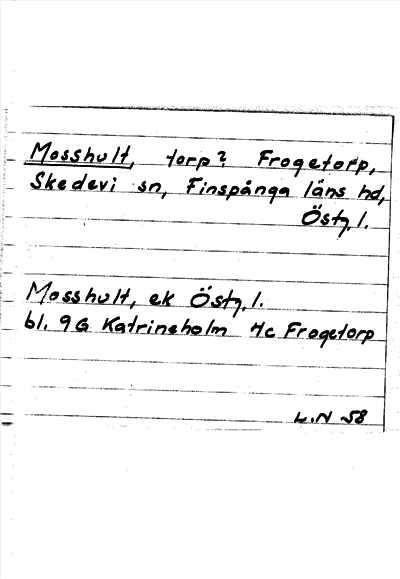 Mosshult, torp? Frogetorp,
Skedevi sn, Finspånga läns hd,
Östg. l.
Mosshult, ek Östg. l.
bl. 9G Katrineholm 4c Frogetorp
L.N -58